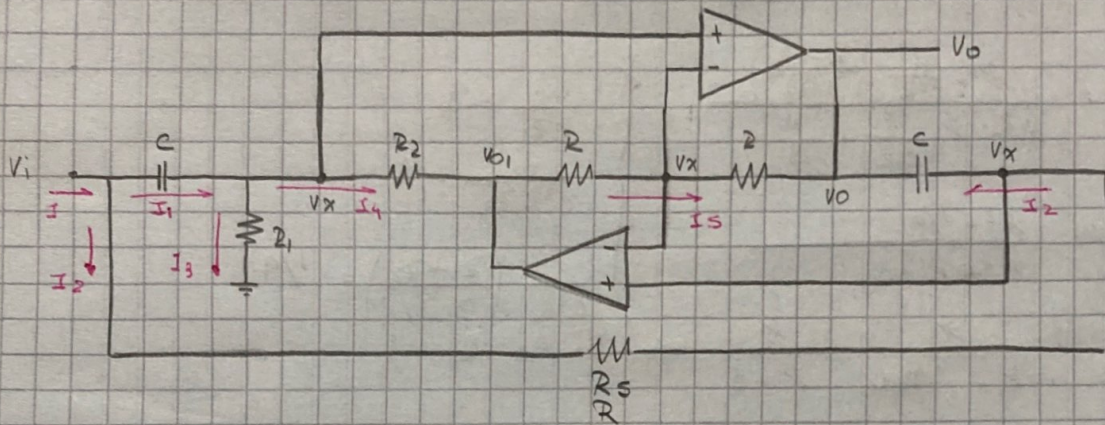 +
-
Vo
Vi
C
R2
Vo1
R
Vx
R
C
Vx
I
I1
Vx
I4
I5
Vo
I2
I2
I3
R1
-
+
R5
R